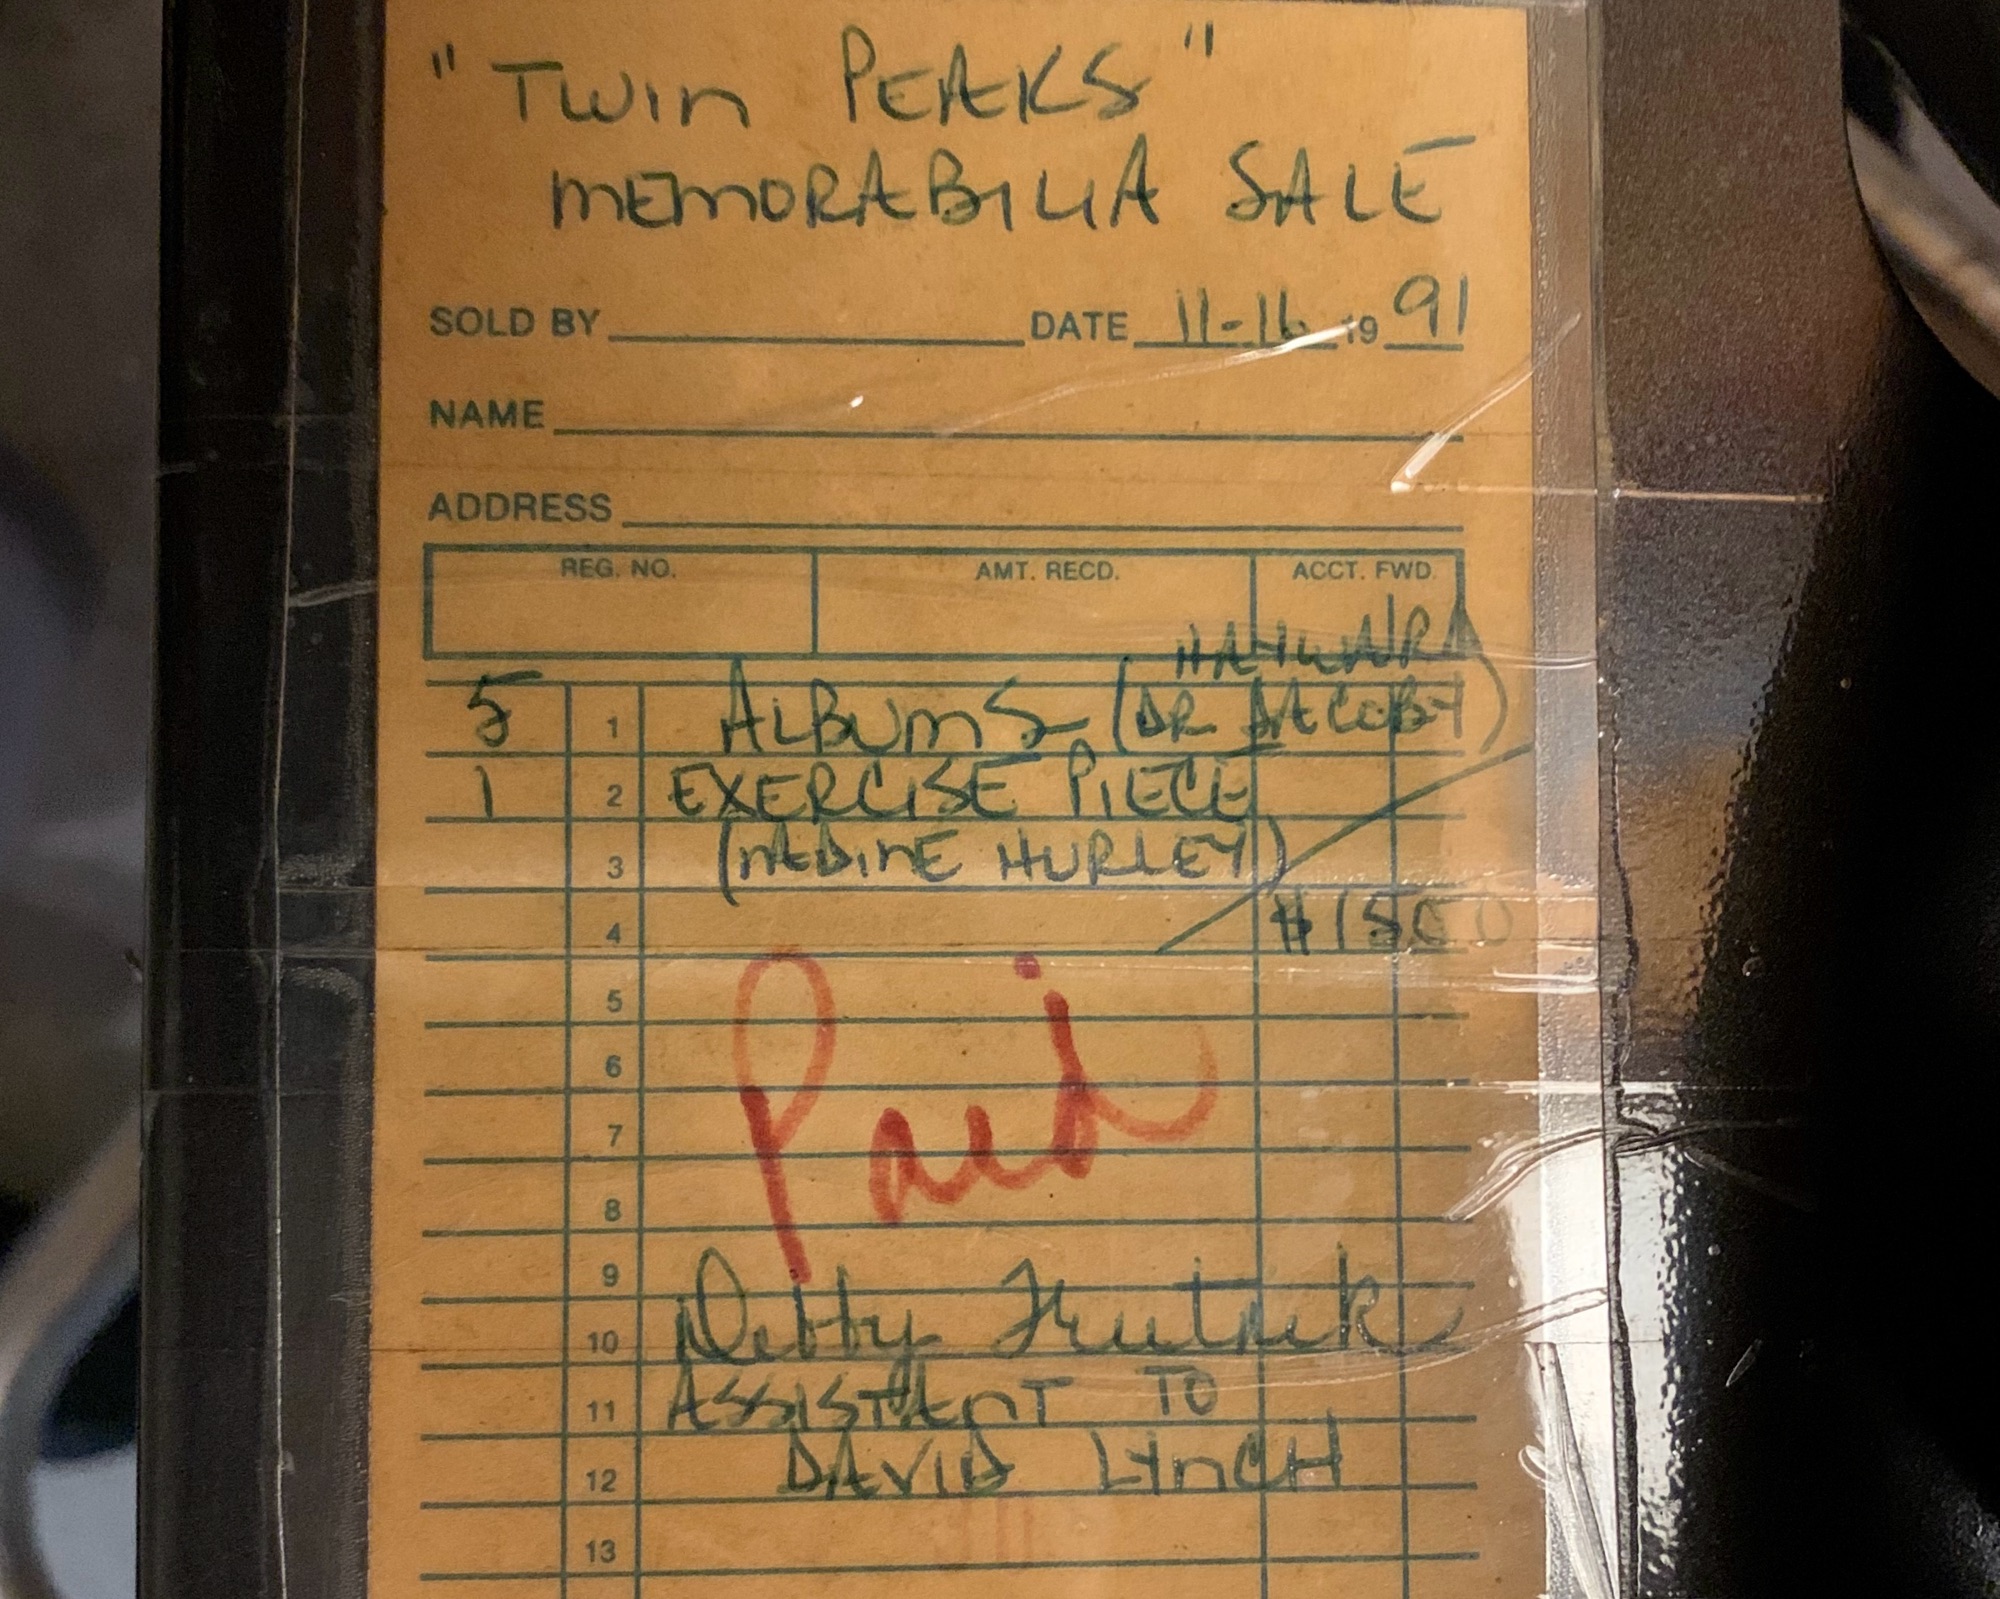 "TWIN PEAKS"
MEMORABILIA SALE
SOLD BY DATE 11-16 19 91
NAME
ADDRESS
REG. NO. AMT. RECD. ACCT. FWD.
HAYWARD
5 1 ALBUMS (DR JACOBY)
1 2 EXERCISE PIECE
3 (NADINE HURLEY)
4 $1500
5
6
Paid
7
8
9
10
11 ASSISTANT TO
12 DAVID LYNCH
13